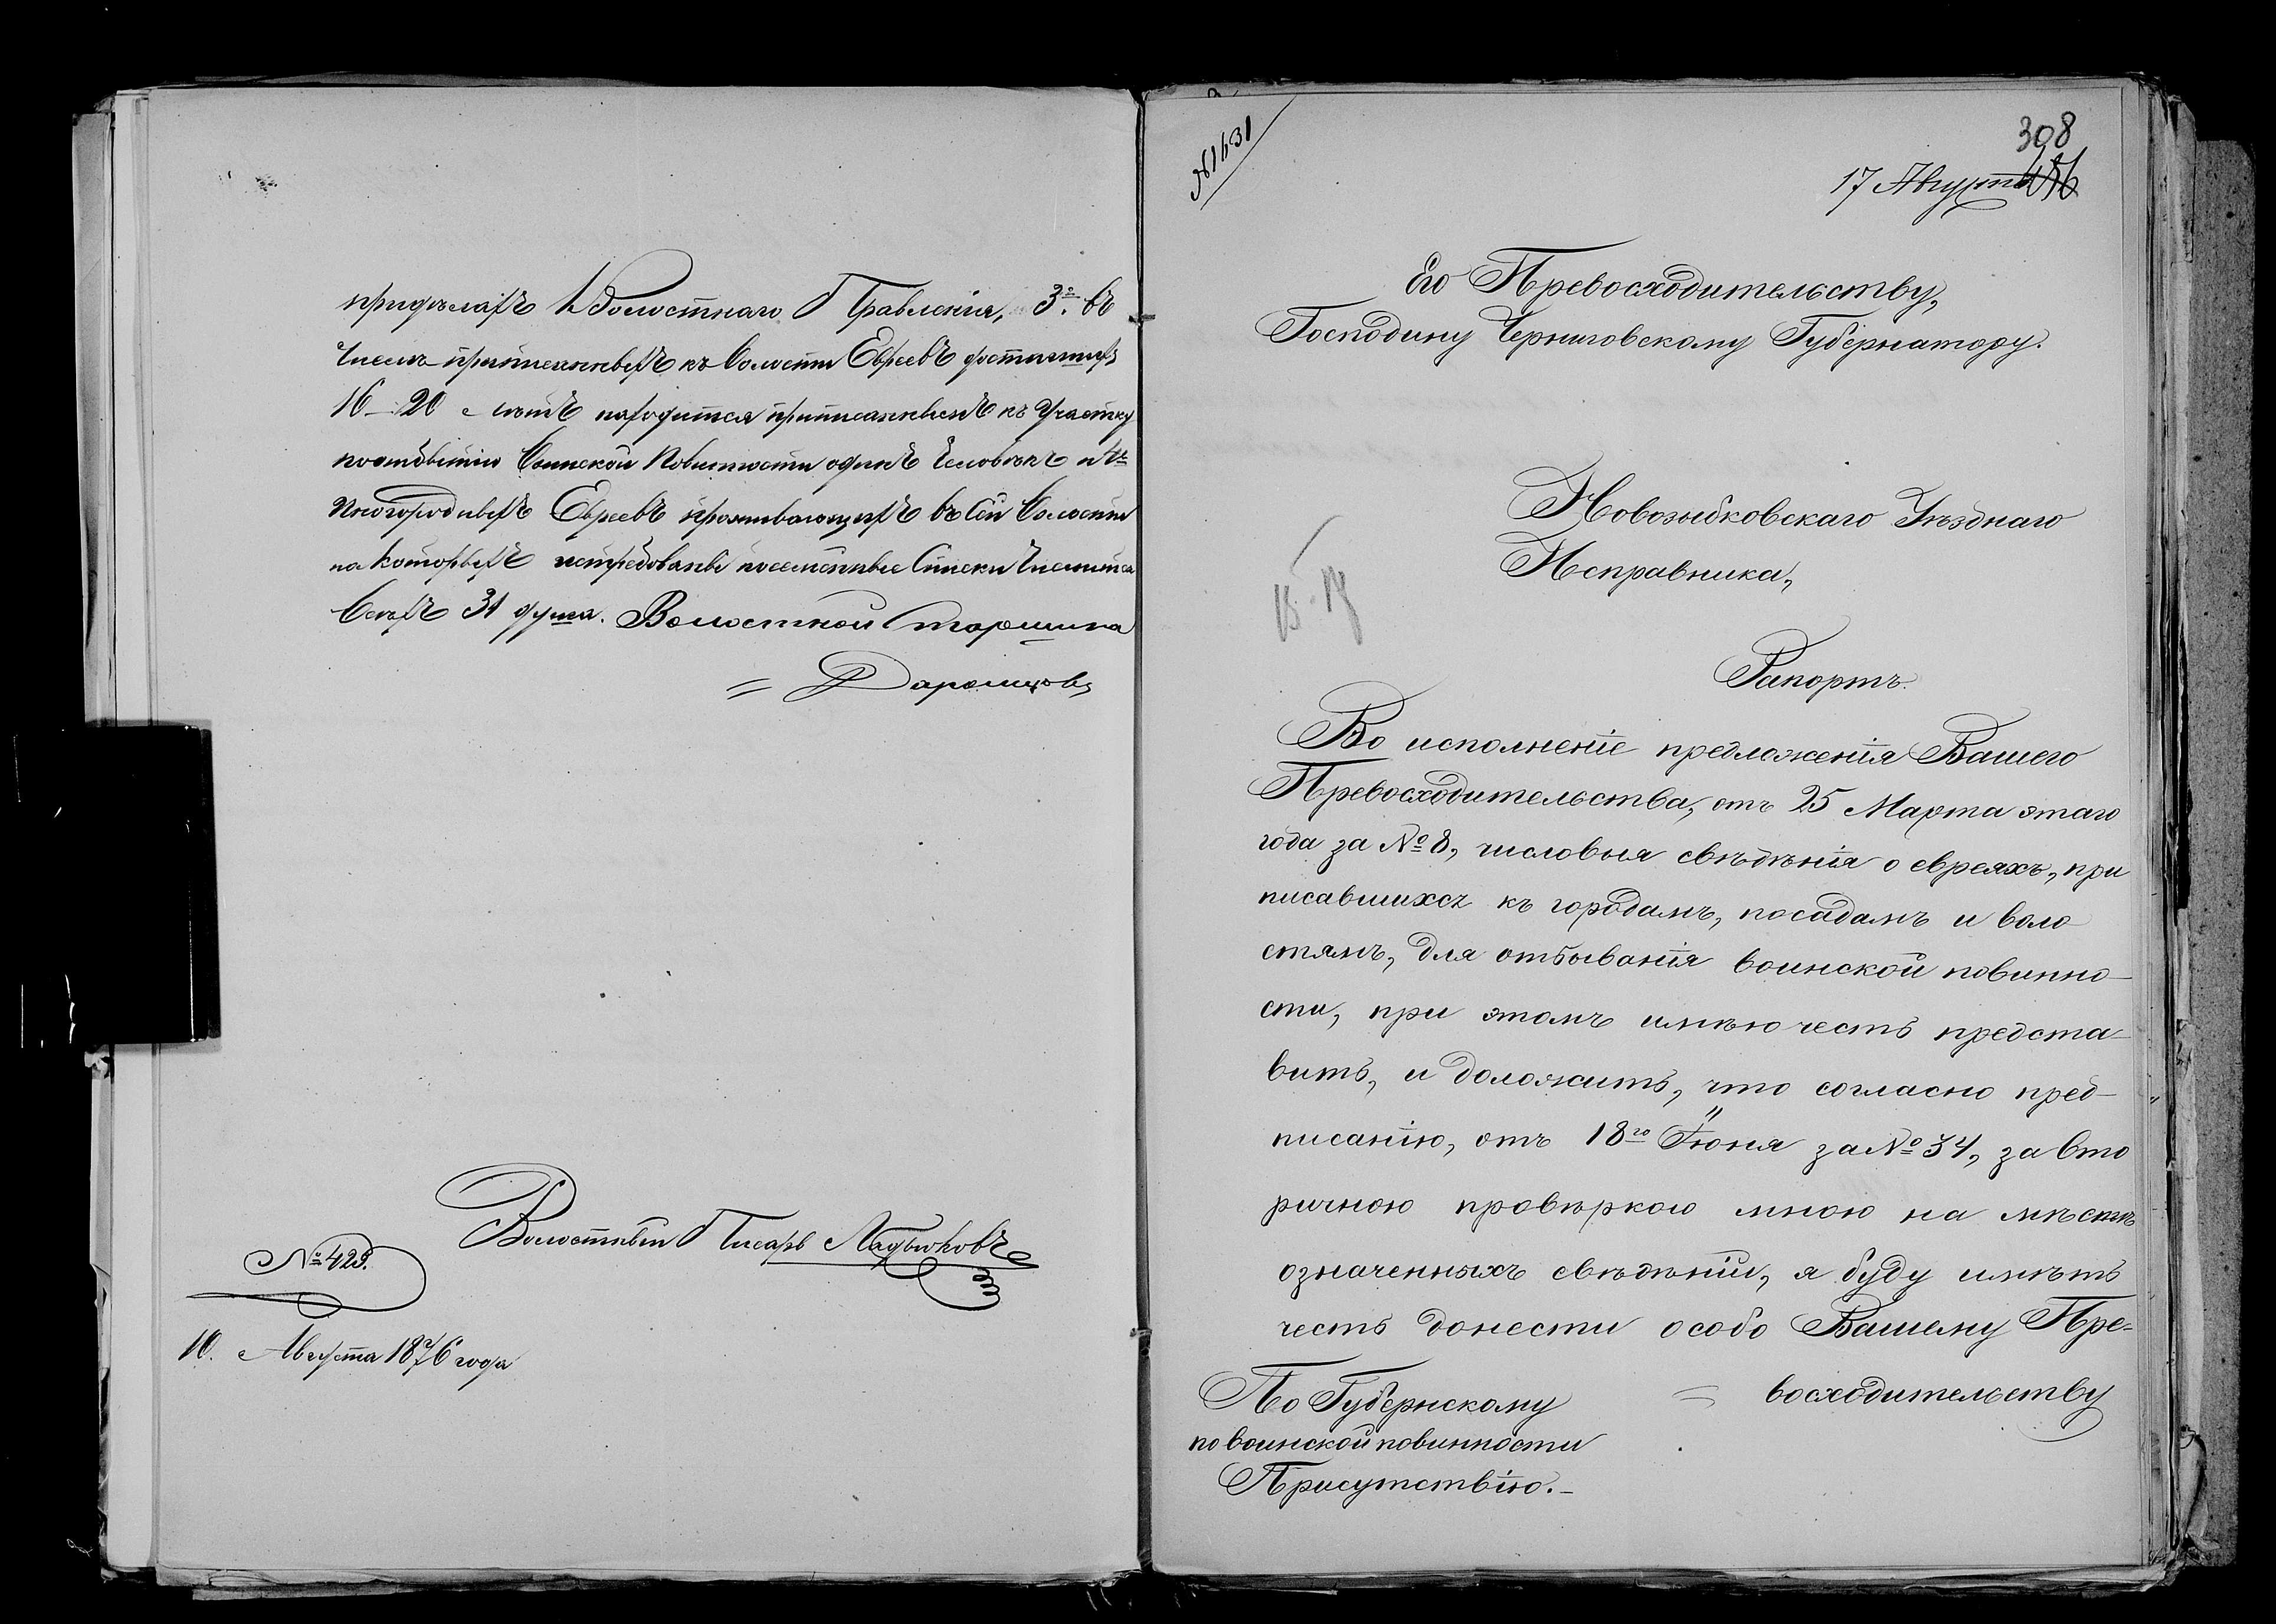 придѣлахъ Волостнаго Правленія, 3е. въ
числѣ приписанныхъ къ Волости Евреевъ достигшихъ
16-20 лѣтъ находится приписанныхъ къ Участку
по отбытію Воинской Повинности одинъ Человѣкъ и 4е
Иногородныхъ Евреевъ проживающихъ въ сей Волости
на которыхъ истребованы посемейные Списки Числится
Всѣхъ 31 душа. Волостной Старшина
Волостный Писарь
№ 423.
10. Августа 1876 года
№ 1631
308
17 Августа
Его Превосходительству,
Господину Черниговскому Губернатору.
Новозыбковскаго Уѣзднаго
Исправника,
Рапортъ.
Во исполненіе предложенія Вашего
Превосходительства, отъ 25 Марта этаго
года за № 8, числовыя свѣдѣнія о евреяхъ, при
писавшихся къ городамъ, посадамъ и воло
стямъ, для отбыванія воинской повинно-
сти, при этомъ имѣю честь предста-
вить, и доложить, что согласно пред-
писанію, отъ 18го Іюня за № 34, за вто
ричною провѣркою мною на мѣстѣ
означенныхъ свѣдѣній, я буду имѣть
честь донести особо Вашему Пре-
восходительству
По Губернскому
по воинской повинности
Присутствію.-